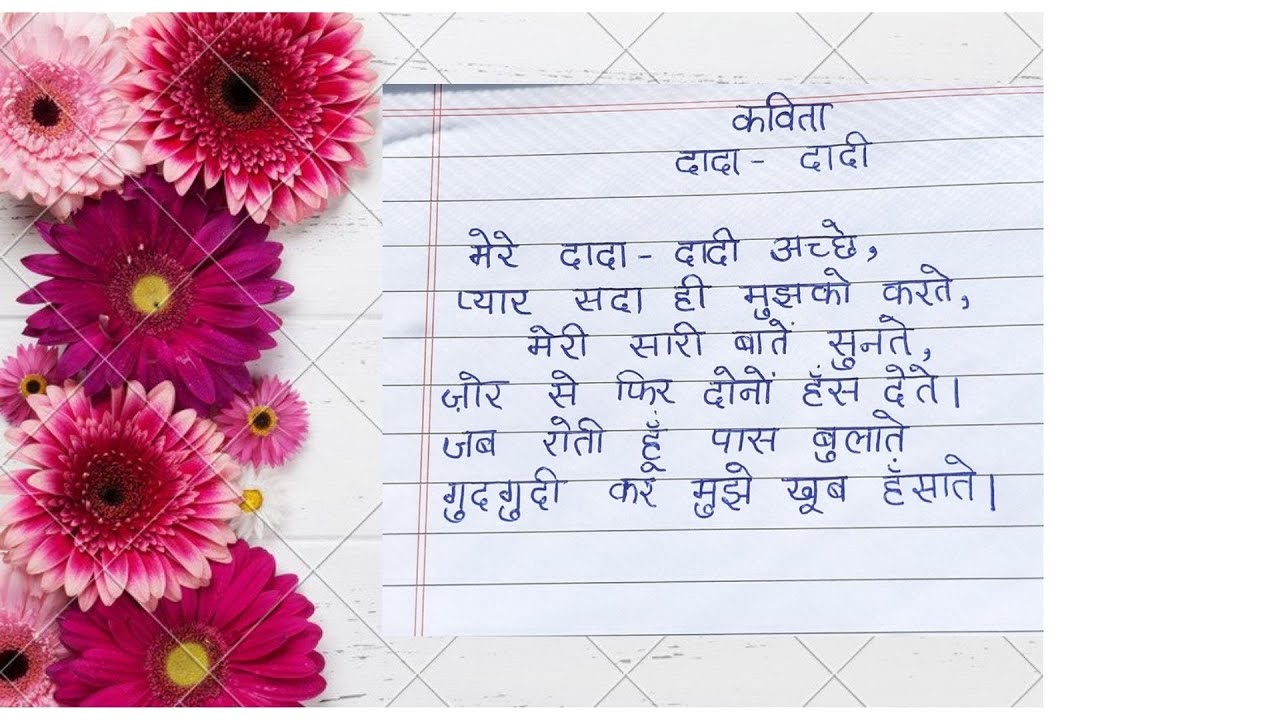 कविता
दादा - दादी
मेरे दादा - दादी अच्छे,
प्यार सदा ही मुझको करते,
मेरी सारी बातें सुनते,
ज़ोर से फिर दोनों हँस देते।
जब रोती हूँ पास बुलाते
गुदगुदी कर मुझे खूब हँसाते।